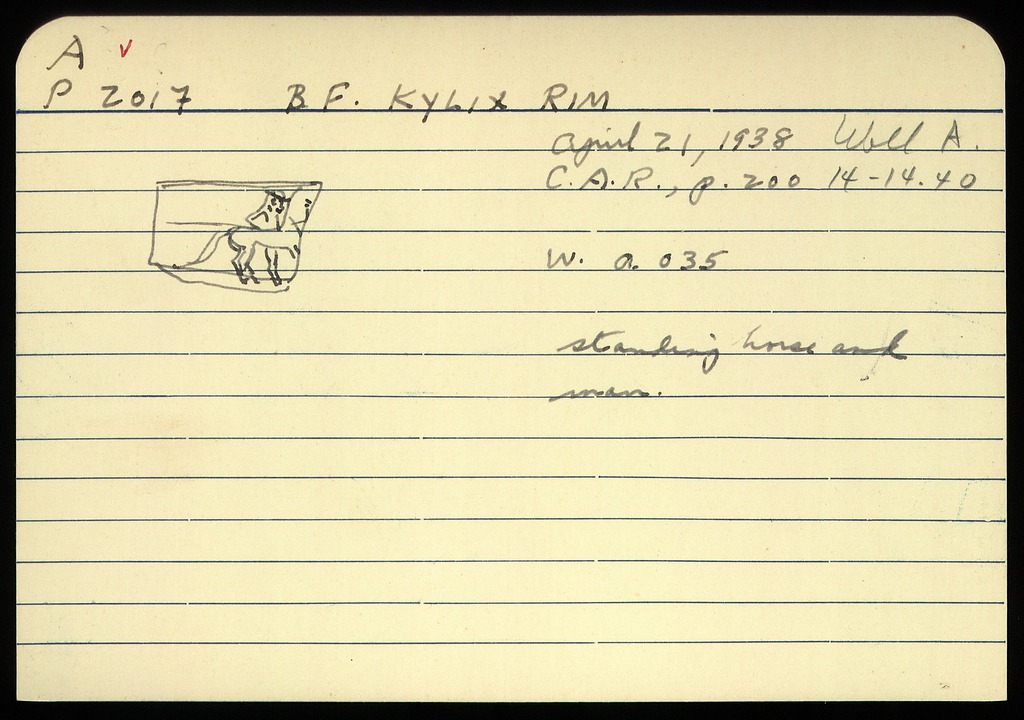 A v
P 2017 B F. KYLIX RIM
April 21, 1938 Well A.
C.A.R., p. 200 14-14.40
W. a. 035
standing horse and
man.